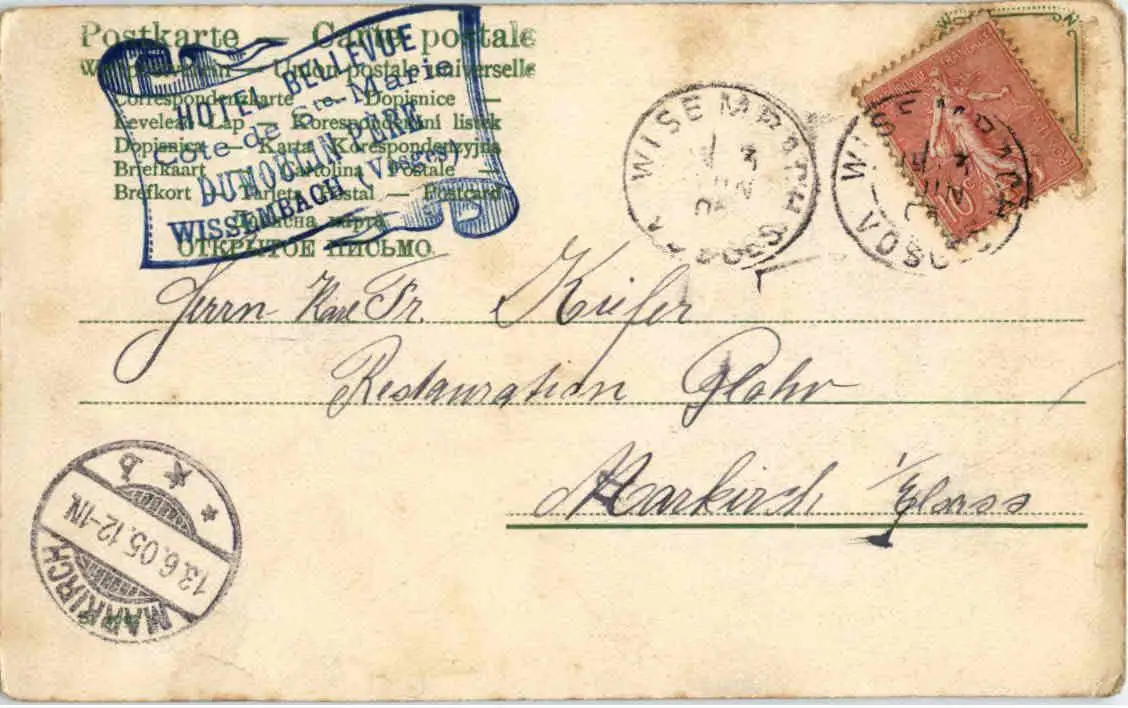 Postkarte — Carte postale
Weltpostverein — Union postale universelle
Correspondenzkarte — Dopisnice —
Levelezö-Lap — Korespondenční lístek
Dopisnica — Karta Korespondencyjna
Briefkaart — Cartolina Postale —
Brefkort — Tarjeta Postal — Postcard
ОТКРЫТОЕ ПИСЬМО.
HOTEL BELLEVUE
Côte de Ste-Marie
DUMOULIN
WISSEMBACH (Vosges)
WISEMBACH
JUIN
WISEMBACH
VOSGES
JUIN
10
Herrn Karl Fr. Kiefer
Restauration
Markirch i/Elsass
MARKIRCH
13.6.05.12-1N.
* b *